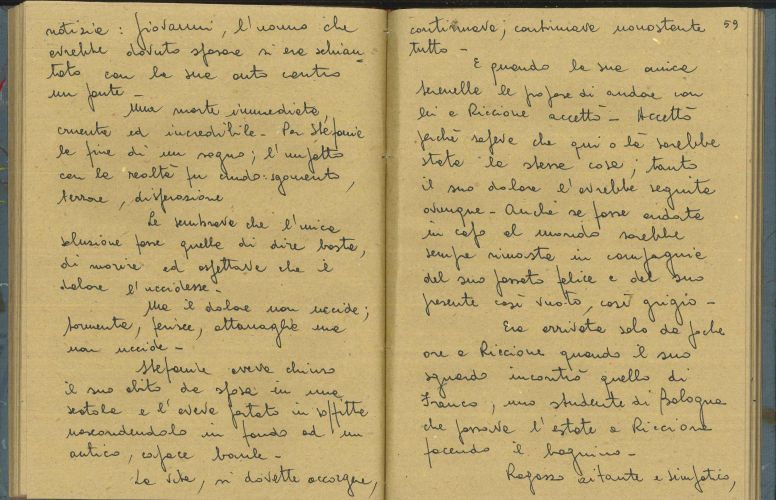 notizia : Giovanni, l'uomo che
avrebbe dovuto sposare si era schian-
tato con la sua auto contro
un ponte -
Una morte immediata,
cruenta ed incredibile - Per Stefania
la fine di un sogno; l'impatto
con la realtà fu crudo: sgomento,
terrore, disperazione
Le sembrava che l'unica
soluzione fosse quella di dire basta,
di morire ed aspettava che il
dolore l'uccidesse -
Ma il dolore non uccide;
tormenta, ferisce, attanaglia ma
non uccide -
Stefania aveva chiuso
il suo abito da sposa in una
scatola e l'aveva portato in soffitta
nascondendolo in fondo ad un
antico, capace baule -
La vita, si dovette accorgere,
59
continuava; continuava nonostante
tutto -
E quando la sua amica
Serenella le propose di andare con
lei a Riccione accettò - Accettò
perché sapeva che qui o là sarebbe
stata la stessa cosa; tanto
il suo dolore l'avrebbe seguita
ovunque - Anche se fosse andata
in capo al mondo sarebbe
sempre rimasta in compagnia
del suo passato felice e del suo
presente così vuoto, così grigio -
Era arrivata solo da poche
ore a Riccione quando il suo
sguardo incontrò quello di
Franco, uno studente di Bologna
che passava l'estate a Riccione
facendo il bagnino -
Ragazzo aitante e simpatico,